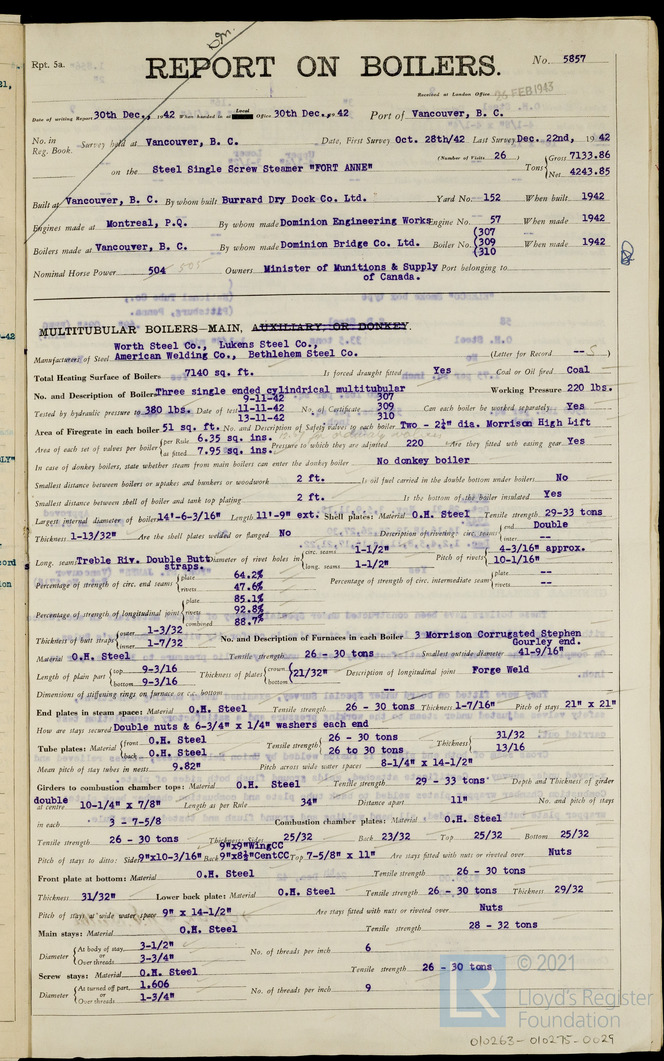 Rpt. 5a.
REPORT ON BOILERS.
No. 5857
Received at London Office 25 FEB 1943
Date of writing Report 30th Dec., 1942 When handed in at Local Office 30th Dec., 1942 Port of Vancouver, B. C.
No. in Reg. Book. Survey held at Vancouver, B. C. Date, First Survey Oct. 28th/42 Last Survey Dec. 22nd, 1942
(Number of Visits 26)
on the Steel Single Screw Steamer "FORT ANNE" Tons { Gross 7133.86
Net 4243.85
Built at Vancouver, B. C. By whom built Burrard Dry Dock Co. Ltd. Yard No. 152 When built 1942
Engines made at Montreal, P.Q. By whom made Dominion Engineering Works Engine No. 57 When made 1942
Boilers made at Vancouver, B. C. By whom made Dominion Bridge Co. Ltd. Boiler No. (307 (309 (310 When made 1942
Nominal Horse Power 504 505 Owners Minister of Munitions & Supply of Canada. Port belonging to
MULTITUBULAR BOILERS—MAIN, AUXILIARY, OR DONKEY.
Manufacturers of Steel Worth Steel Co., Lukens Steel Co.,
American Welding Co., Bethlehem Steel Co. (Letter for Record -- S )
Total Heating Surface of Boilers 7140 sq. ft. Is forced draught fitted Yes Coal or Oil fired Coal
No. and Description of Boilers Three single ended cylindrical multitubular Working Pressure 220 lbs.
Tested by hydraulic pressure to 380 lbs. Date of test 9-11-42 11-11-42 13-11-42 No. of Certificate 307 309 310 Can each boiler be worked separately Yes
Area of Firegrate in each boiler 51 sq. ft. No. and Description of Safety valves to each boiler Two - 2½" dia. Morrison High Lift
Area of each set of valves per boiler { per Rule 6.35 sq. ins.
as fitted 7.95 sq. ins. Pressure to which they are adjusted 220 Are they fitted with easing gear Yes
In case of donkey boilers, state whether steam from main boilers can enter the donkey boiler No donkey boiler
Smallest distance between boilers or uptakes and bunkers or woodwork 2 ft. Is oil fuel carried in the double bottom under boilers No
Smallest distance between shell of boiler and tank top plating 2 ft. Is the bottom of the boiler insulated Yes
Largest internal diameter of boilers 14'-6-3/16" Length 11'-9" ext. Shell plates: Material O.H. Steel Tensile strength 29-33 tons
Thickness 1-13/32" Are the shell plates welded or flanged No Description of riveting: circ. seams { end Double
inter. --
Long. seams Treble Riv. Double Butt straps. Diameter of rivet holes in { circ. seams 1-1/2"
long. seams 1-1/2" Pitch of rivets { 4-3/16" approx.
10-1/16"
Percentage of strength of circ. end seams { plate 64.2%
rivets 47.6% Percentage of strength of circ. intermediate seam { plate --
rivets --
Percentage of strength of longitudinal joint { plate 85.1%
rivets 92.8%
combined 88.7%
Thickness of butt straps { outer 1-3/32
inner 1-7/32 No. and Description of Furnaces in each Boiler 3 Morrison Corrugated Stephen Gourley end.
Material O.H. Steel Tensile strength 26 - 30 tons Smallest outside diameter 41-9/16"
Length of plain part { top 9-3/16
bottom 9-3/16 Thickness of plates { crown bottom } 21/32" Description of longitudinal joint Forge Weld
Dimensions of stiffening rings on furnace or c.c. bottom --
End plates in steam space: Material O.H. Steel Tensile strength 26 - 30 tons Thickness 1-7/16" Pitch of stays 21" x 21"
How are stays secured Double nuts & 6-3/4" x 1/4" washers each end
Tube plates: Material { front O.H. Steel
back O.H. Steel Tensile strength { 26 - 30 tons
26 to 30 tons Thickness { 31/32
13/16
Mean pitch of stay tubes in nests 9.82" Pitch across wide water spaces 8-1/4" x 14-1/2"
Girders to combustion chamber tops: Material O.H. Steel Tensile strength 29 - 33 tons Depth and Thickness of girder
double at centre 10-1/4" x 7/8" Length as per Rule 34" Distance apart 11" No. and pitch of stays
in each 3 - 7-5/8 Combustion chamber plates: Material O.H. Steel
Tensile strength 26 - 30 tons Thickness: Sides 25/32 Back 23/32 Top 25/32 Bottom 25/32
Pitch of stays to ditto: Sides 9"x10-3/16" Back 9"x9"WingCC 9"x8½"CentCC Top 7-5/8" x 11" Are stays fitted with nuts or riveted over Nuts
Front plate at bottom: Material O.H. Steel Tensile strength 26 - 30 tons
Thickness 31/32" Lower back plate: Material O.H. Steel Tensile strength 26 - 30 tons Thickness 29/32
Pitch of stays at wide water space 9" x 14-1/2" Are stays fitted with nuts or riveted over Nuts
Main stays: Material O.H. Steel Tensile strength 28 - 32 tons
Diameter { At body of stay 3-1/2"
or Over threads 3-3/4" No. of threads per inch 6
Screw stays: Material O.H. Steel Tensile strength 26 - 30 tons
Diameter { At turned off part 1.606
or Over threads 1-3/4" No. of threads per inch 9
LR © 2021
Lloyd's Register
Foundation
010263-010275-0029